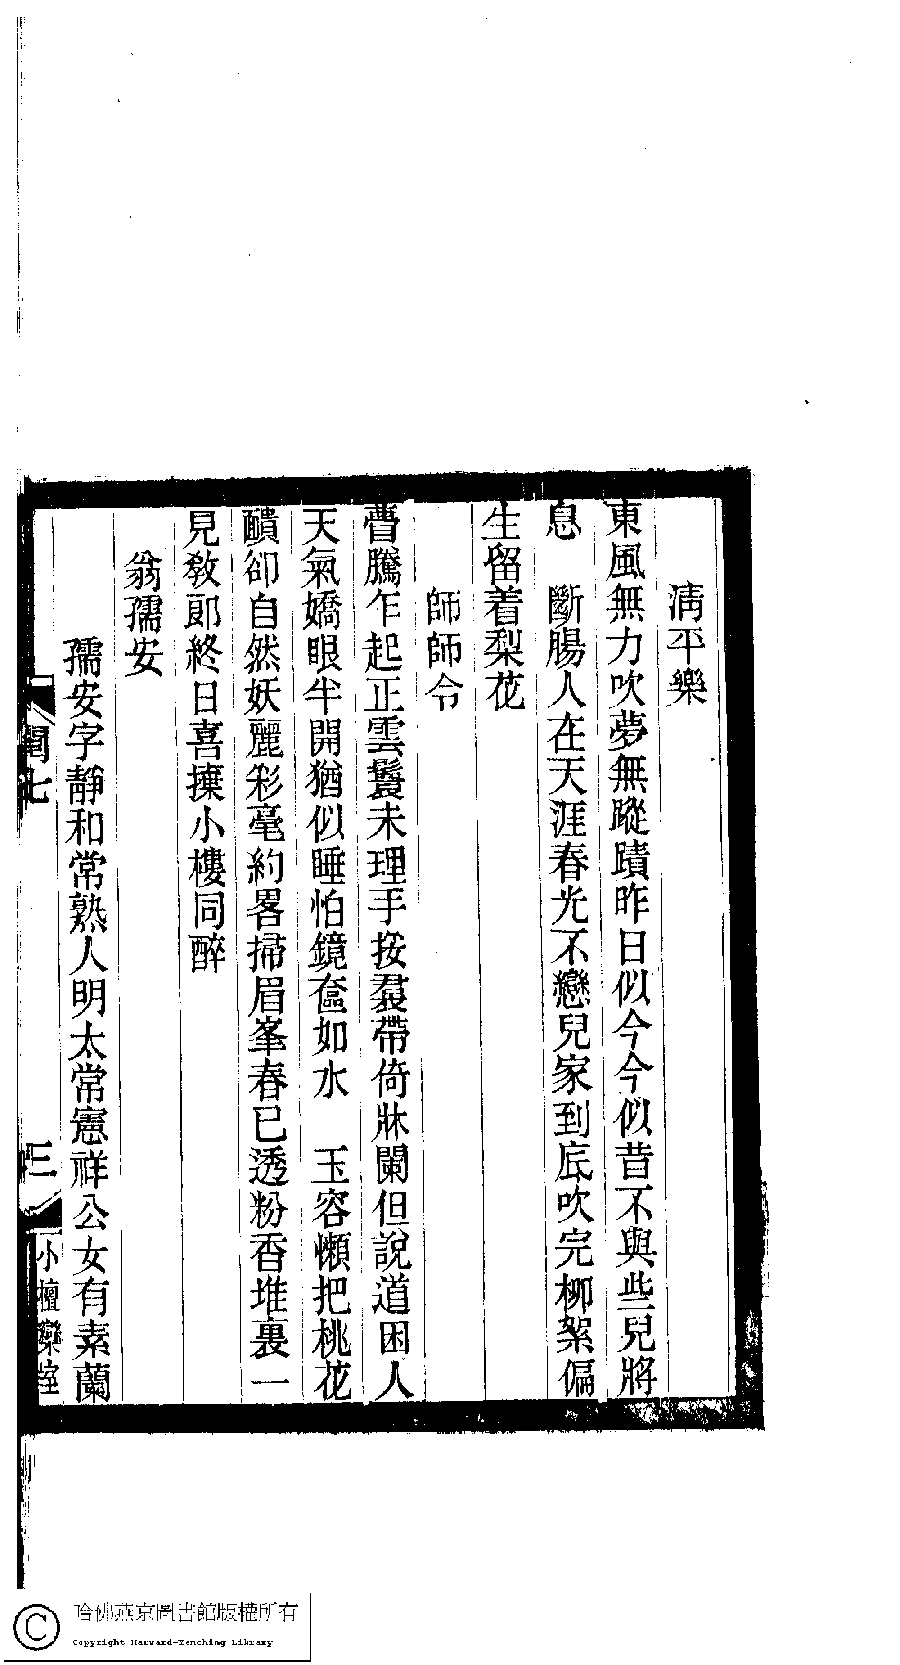 清平樂
東風無力吹夢無蹤蹟昨日似今今似昔不與些兒將
息　斷腸人在天涯春光不戀兒家到底吹完柳絮偏
生留着梨花
師師令
瞢騰乍起正雲鬟未理手挼羣帶倚牀闌但說道困人
天氣嬌眼半開猶似睡怕鏡奩如水　玉容懶把桃花
靧卻自然妖麗彩毫約畧掃眉峯春已透粉香堆裏一
見敎郞終日喜攘小樓同醉
翁孺安
孺安字靜和常熟人明太常憲祥公女有素蘭
閏七
三
小檀欒室
哈佛燕京圖書館版權所有
Copyright Harvard-Yenching Library